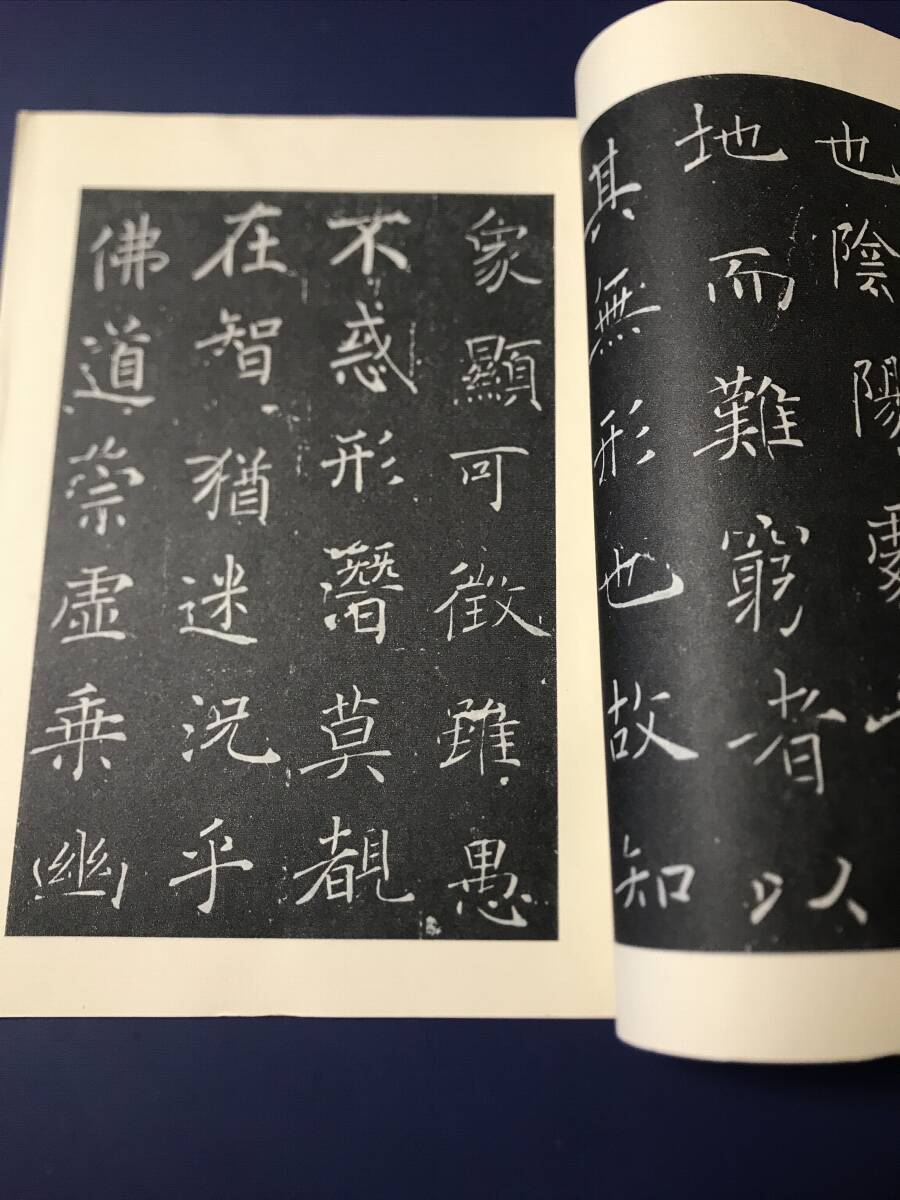 也陰陽處
地而難窮者以
其無形也故知
象顯可徵雖愚
不惑形潛莫覩
在智猶迷況乎
佛道崇虛乘幽